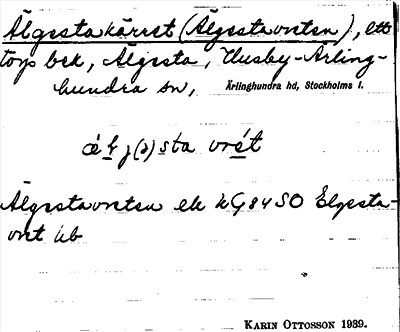 Älgestakärret (Älgestavreten), ett
torp bek, Älgesta, Husby-Ärling-
hundra sn, Ärlinghundra hd, Stockholms l.
Älgestavreten ek KG 84 SO Elgesta-
vret ub
KARIN OTTOSSON 1939.